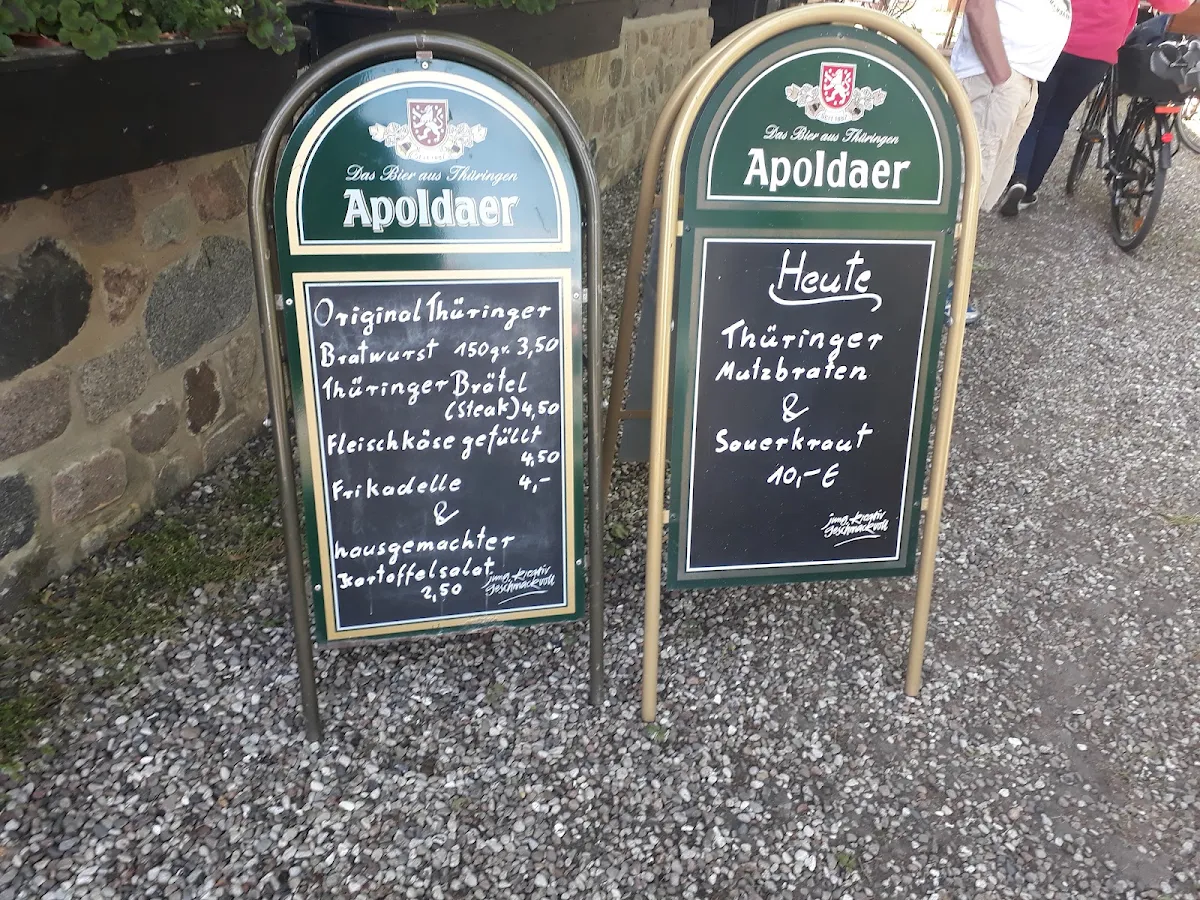 Das Bier aus Thüringen
Apoldaer
Original Thüringer
Bratwurst 150gr. 3,50
Thüringer Brätel
(Steak) 4,50
Fleischkäse gefüllt
4,50
Frikadelle 4,-
&
hausgemachter
Kartoffelsalat
2,50
jung, kreativ
geschmackvoll
SEIT 1887
Das Bier aus Thüringen
Apoldaer
Heute
Thüringer
Mutzbraten
&
Sauerkraut
10,- €
jung, kreativ
geschmackvoll